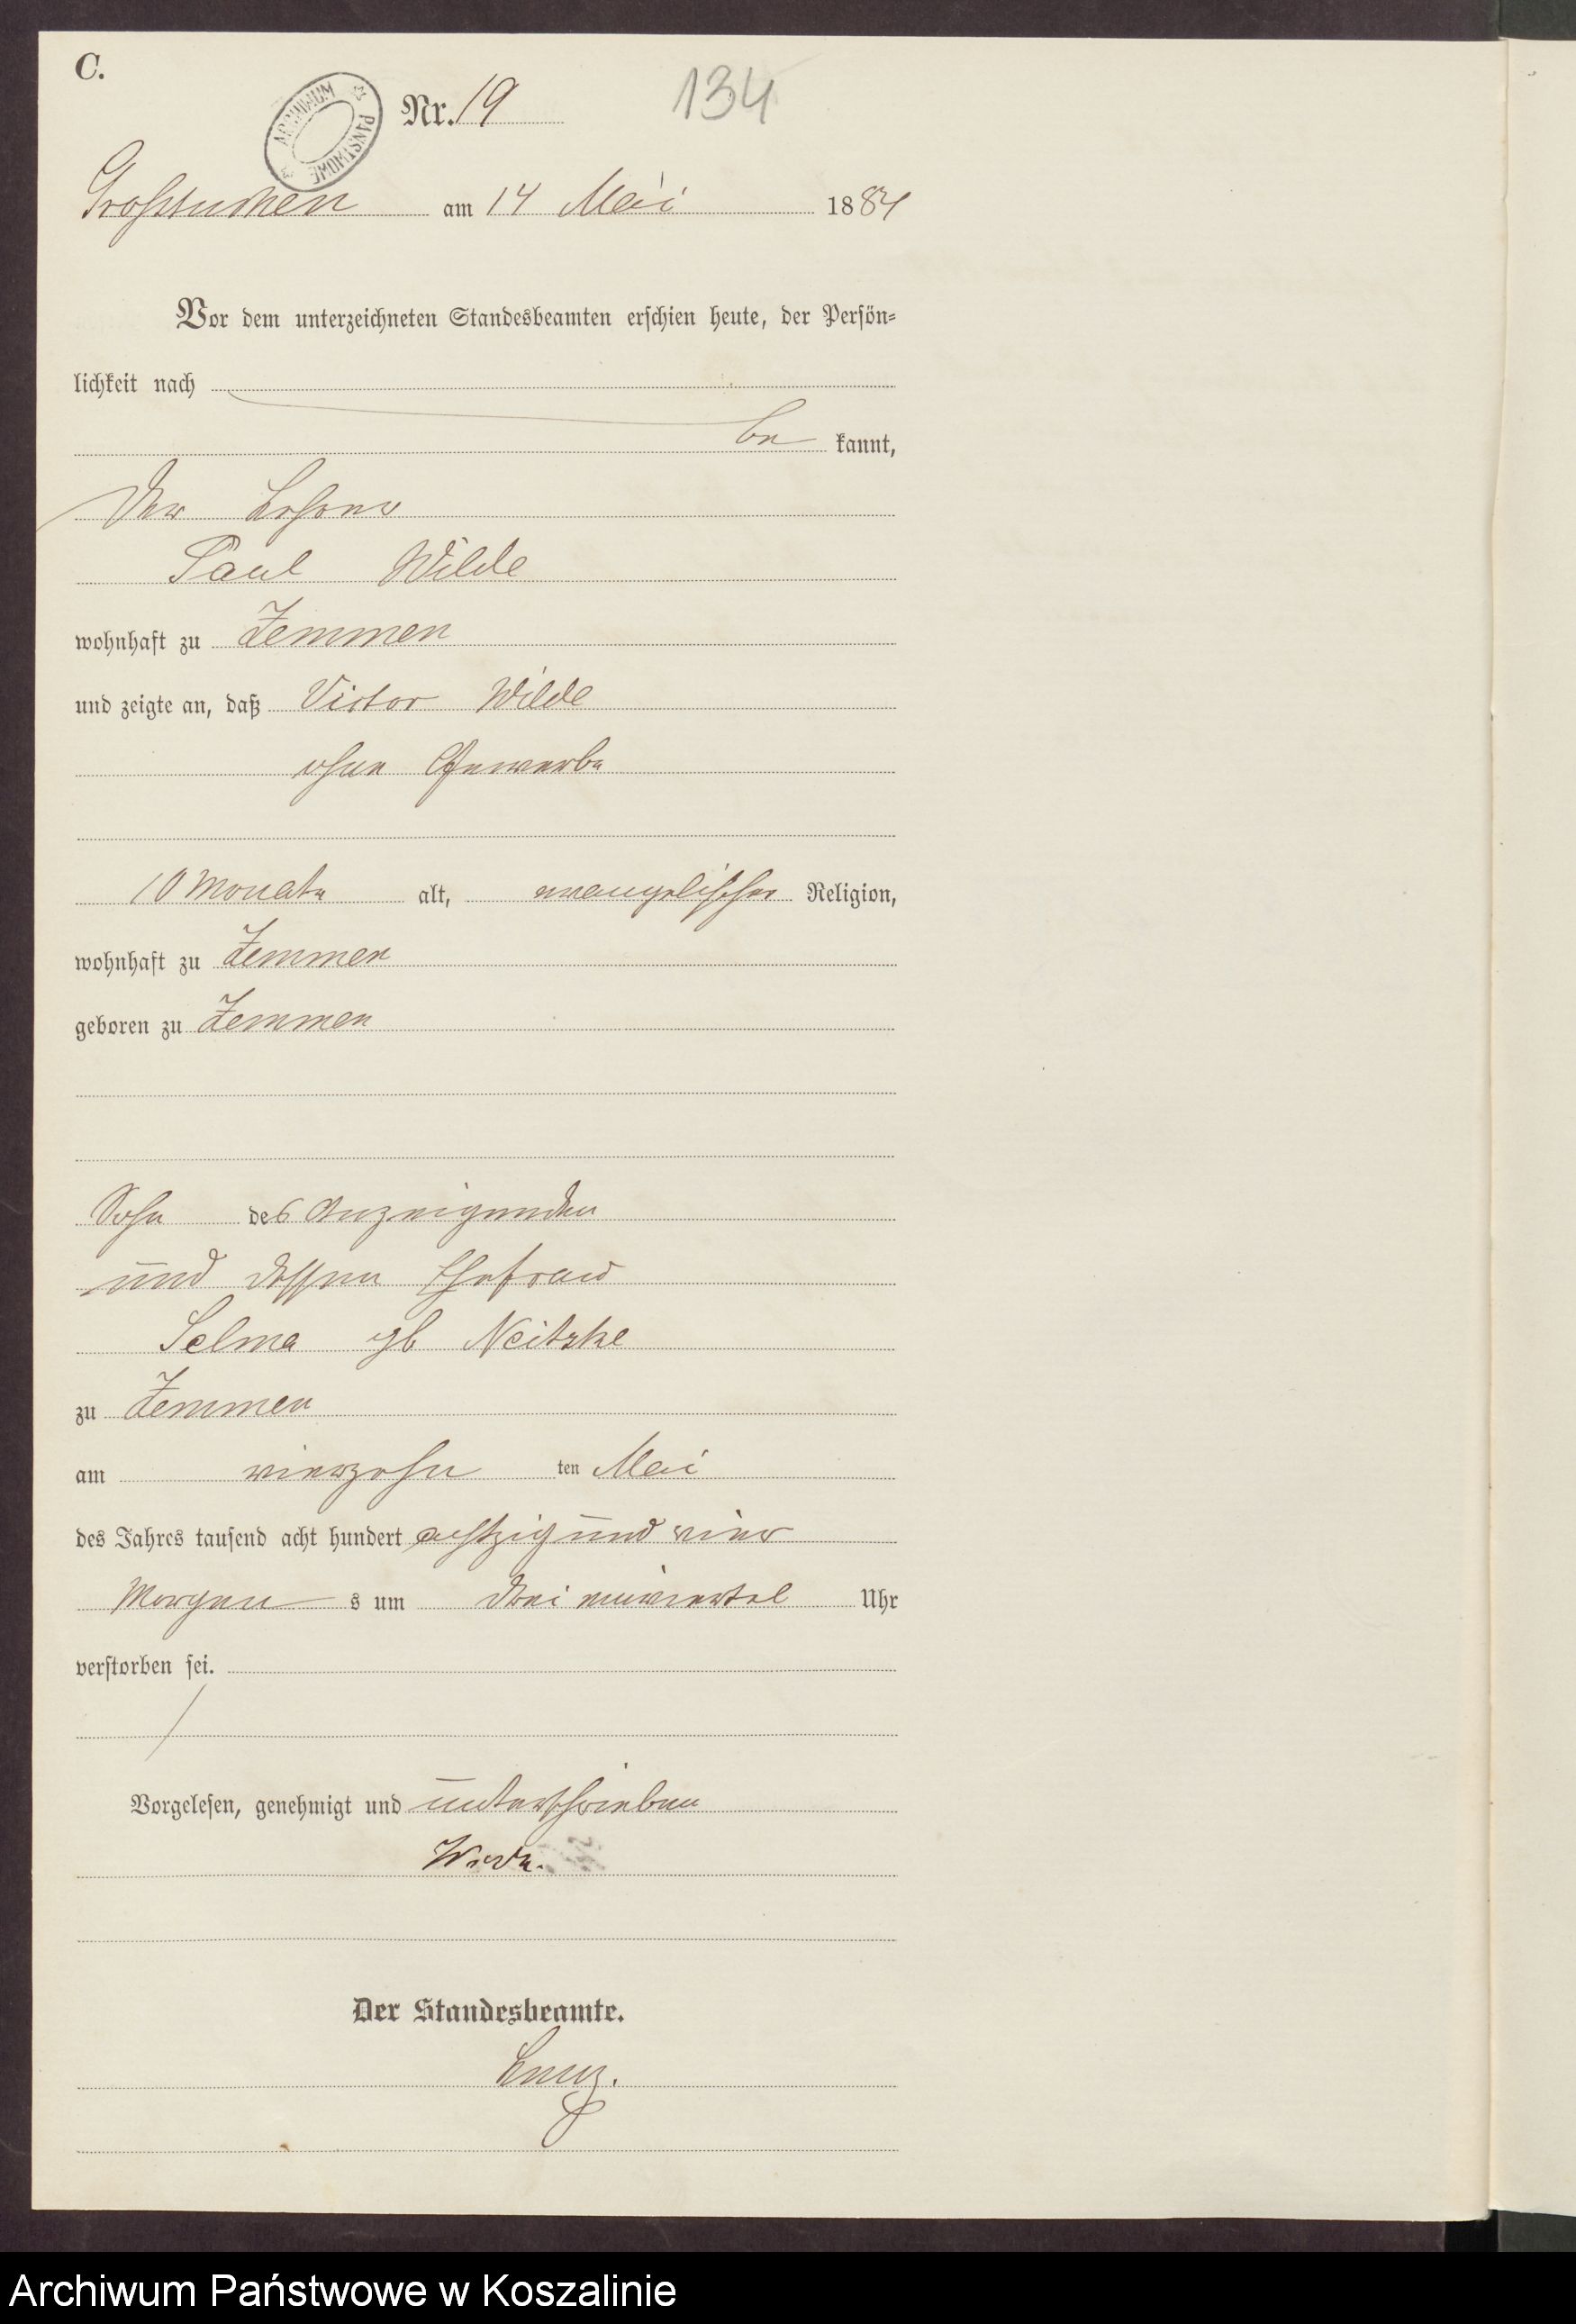 C.
ARCHIWUM PAŃSTWOWE
Nr. 19
134
Grosstuchen am 14 Mai 1884
Vor dem unterzeichneten Standesbeamten erschien heute, der Persön-
lichkeit nach
be kannt,
Der Lehrer
Paul Wilde
wohnhaft zu Zemmen
und zeigte an, daß Victor Wilde
ohne Gewerbe
10 Monate alt, evangelischer Religion,
wohnhaft zu Zemmen
geboren zu Zemmen
Sohn des Anzeigenden
und dessen Ehefrau
Selma gb Neitzke
zu Zemmen
am vierzehn ten Mai
des Jahres tausend acht hundert achtzig und vier
Morgen s um drei Uhr
verstorben sei.
Vorgelesen, genehmigt und unterschrieben
Der Standesbeamte.
Archiwum Państwowe w Koszalinie